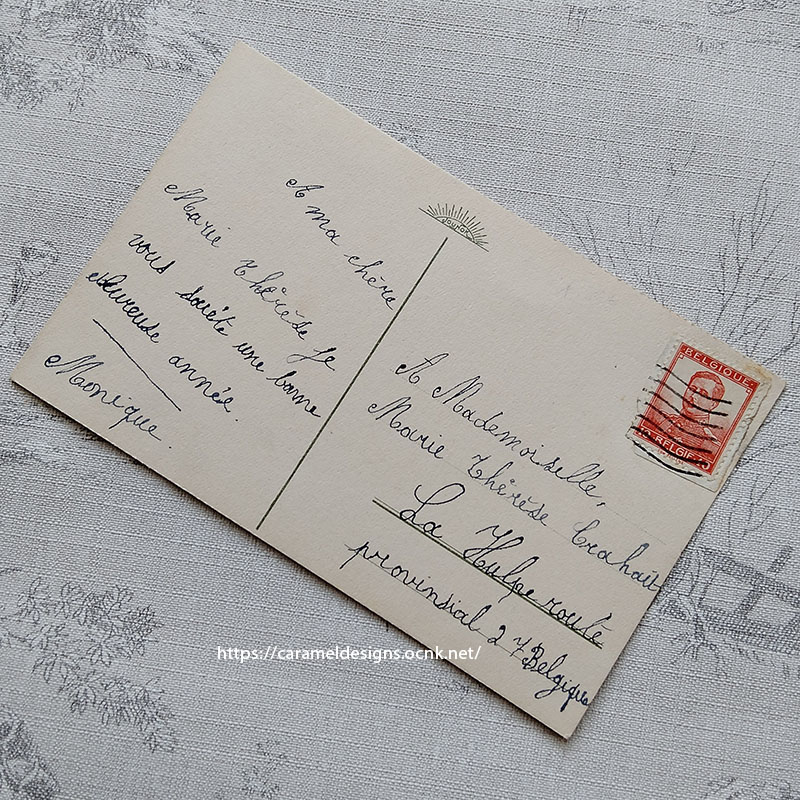 A ma chère
Marie Thérèse Je
vous souète une bonne
eheureuse année.
Monique.
A Mademoiselle,
Marie Thérèse Crahait
La Hulpe route
provinsial 27 Belgique
BELGIQUE
10 BELGIË 10
https://carameldesigns.ocnk.net/